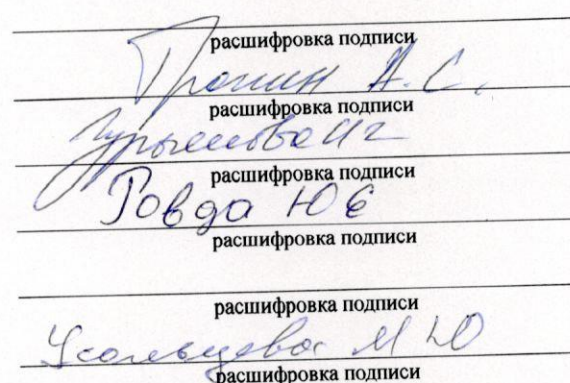 расшифровка подписи
Пронин А.С.
расшифровка подписи
расшифровка подписи
Ровда Ю Е
расшифровка подписи
расшифровка подписи
Усольцева М Ю
расшифровка подписи